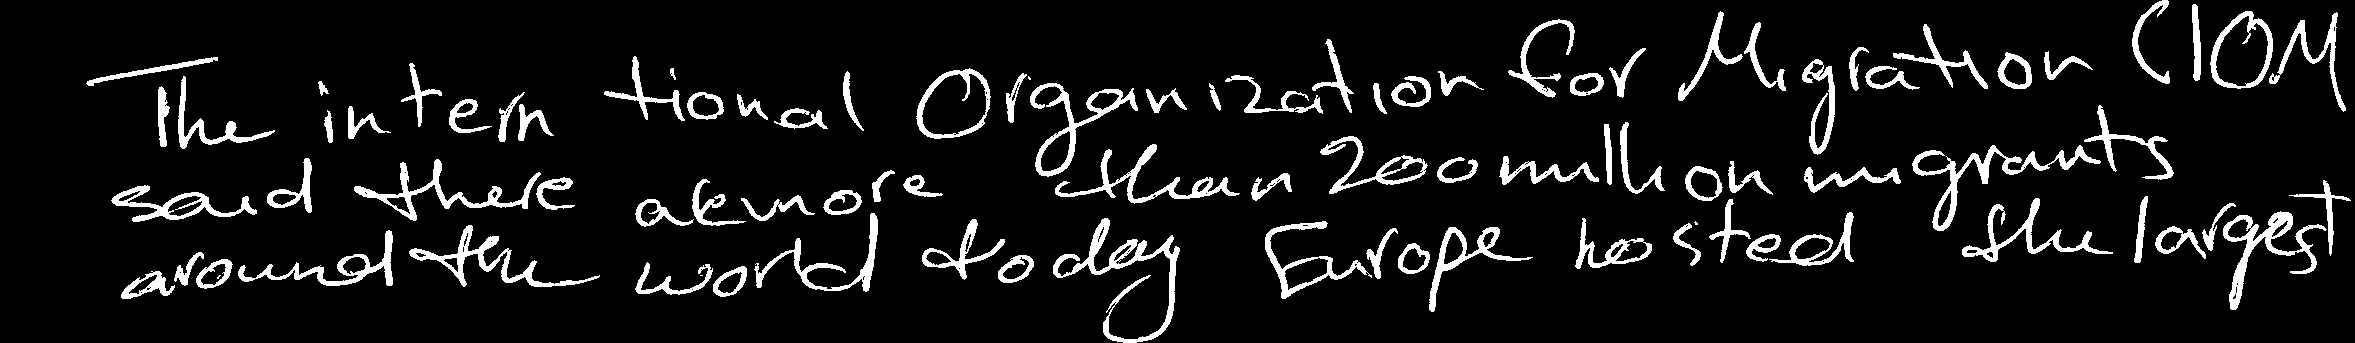 The intern tional Organization for Migration (IOM
said there are more than 200 million migrants
around the world today Europe hosted the largest